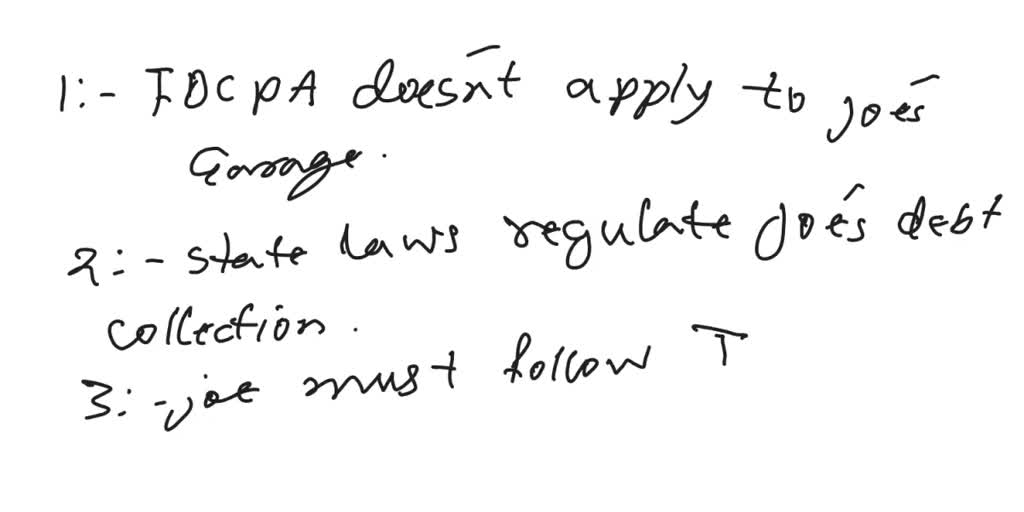 1:- FDCPA doesn't apply to joe's
Garage.
2:- state laws regulate joe's debt
collection.
3:- joe must follow T